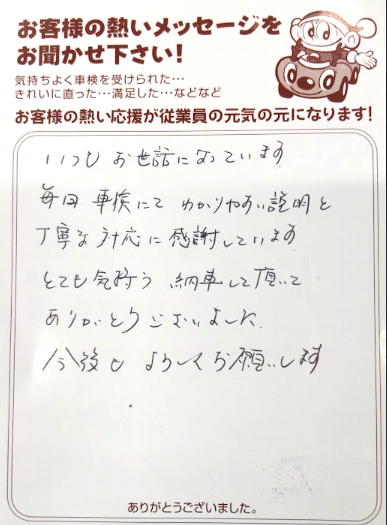 お客様の熱いメッセージを
お聞かせ下さい!
気持ちよく車検を受けられた…
きれいに直った…満足した…などなど
お客様の熱い応援が従業員の元気の元になります!
いつも お世話になっています
毎回 車検にて わかりやすい説明と
丁寧な対応に感謝しています
とても気持よう 納車して頂いて
ありがとうございました.
今後も よろしくお願いします
ありがとうございました。